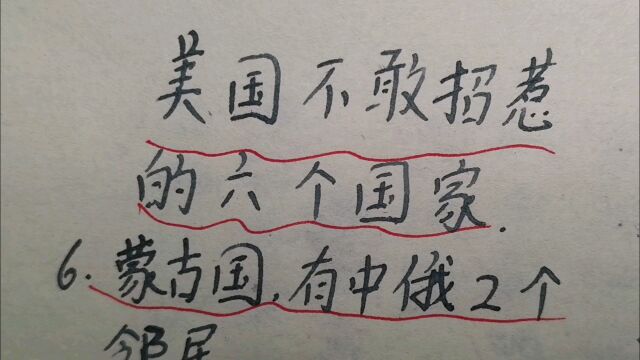 美国不敢招惹
的六个国家.
6.蒙古国,有中俄2个
邻居